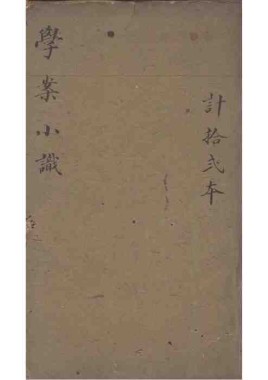 計拾弍本
學案小識